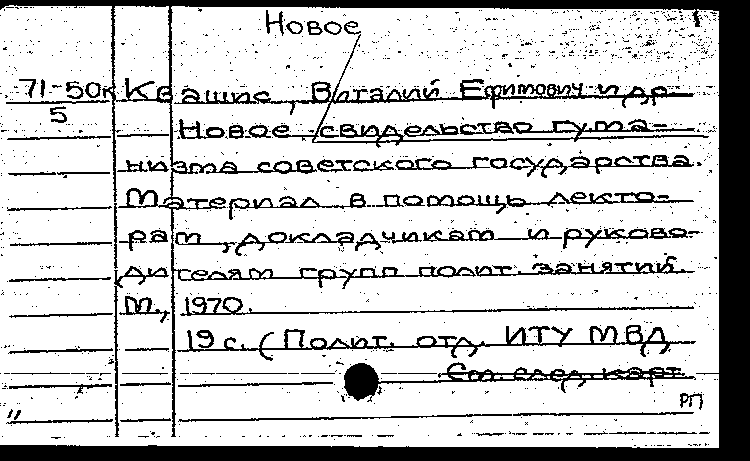 Новое
71-50к Квашис, Виталий Ефимович и др.
5
Новое свидельство гума-
низма советского государства.
Материал в помощь лекто-
рам, докладчикам и руково-
дителям групп полит. занятий.
М., 1970.
19 с. (Полит. отд. ИТУ МВД
См. след. карт
РП